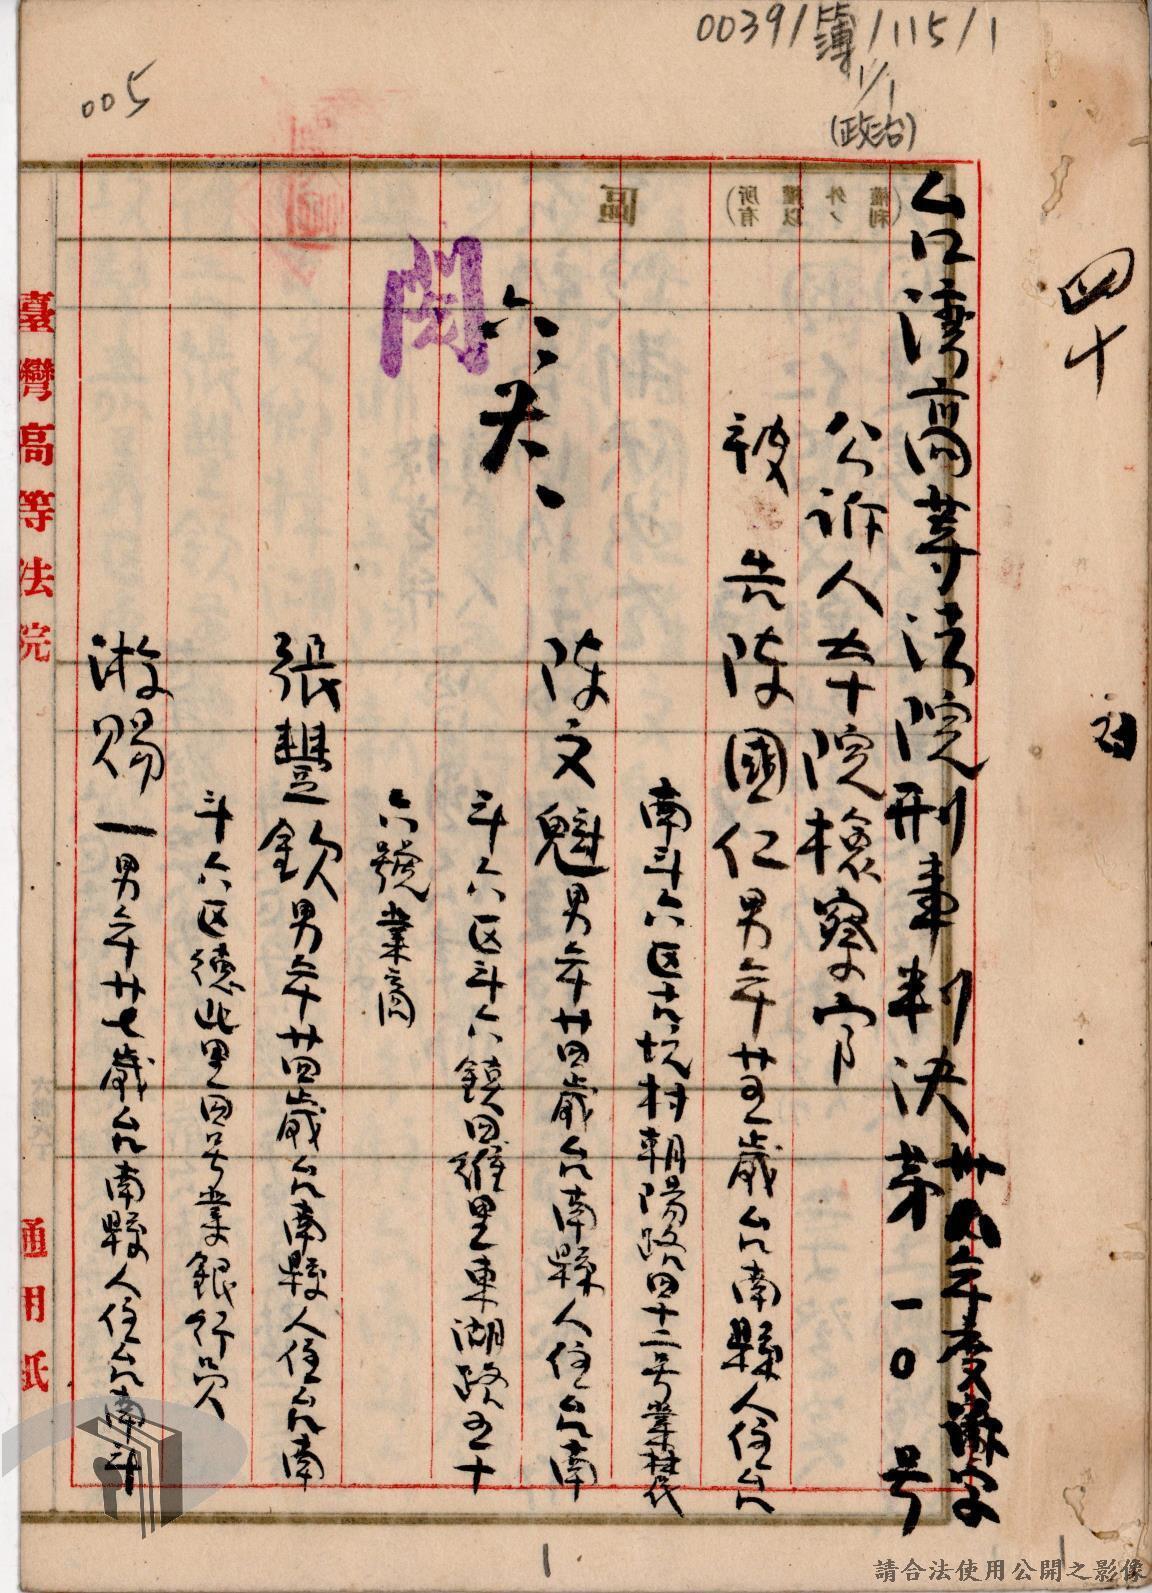 0039/簿/115/1
1/1
(政治)
005
四十
台湾高等法院刑事判決卅八年度訴字第一0号
公訴人本院檢察官
被告陳國仁男年廿五歲台南縣人住台
南斗六区古坑村朝陽路四十二号業林代
陳文魁男年廿四歲台南縣人住台南
斗六区斗六鎮四維里東湖路五十
六號業商
張豐欽男年廿四歲台南縣人住台南
斗六区德北里四号業銀行員
游賜一男年廿七歲台南縣人住台南斗
六、六、
閱
臺灣高等法院
通用紙
區
(權利
外ノ
權以
所有)
請合法使用公開之影像